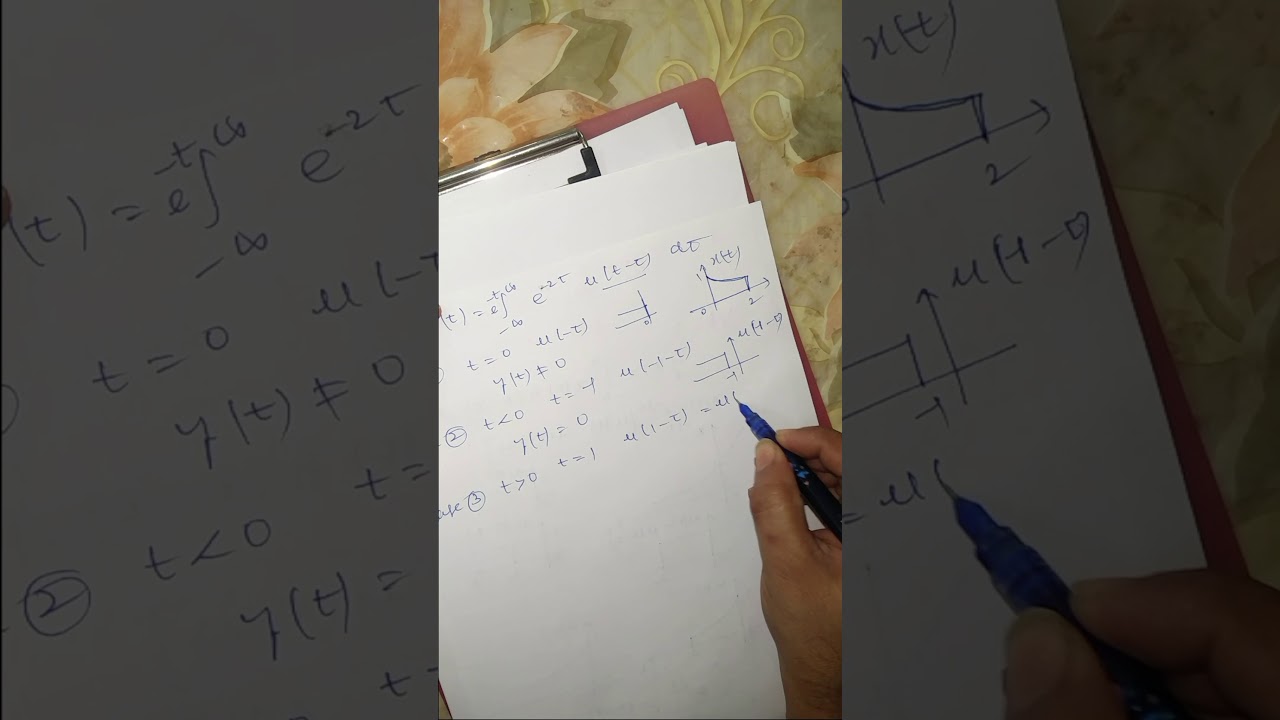 y(t) = e^-t ∫_-∞^∞ e^-2τ u(t-τ) dτ
x(t)
0 2
t=0 u(-τ) 0
y(t) ≠ 0
② t<0 t=-1 u(-1-τ) -1
y(t) = 0
③ t>0 t=1 u(1-τ) = u(